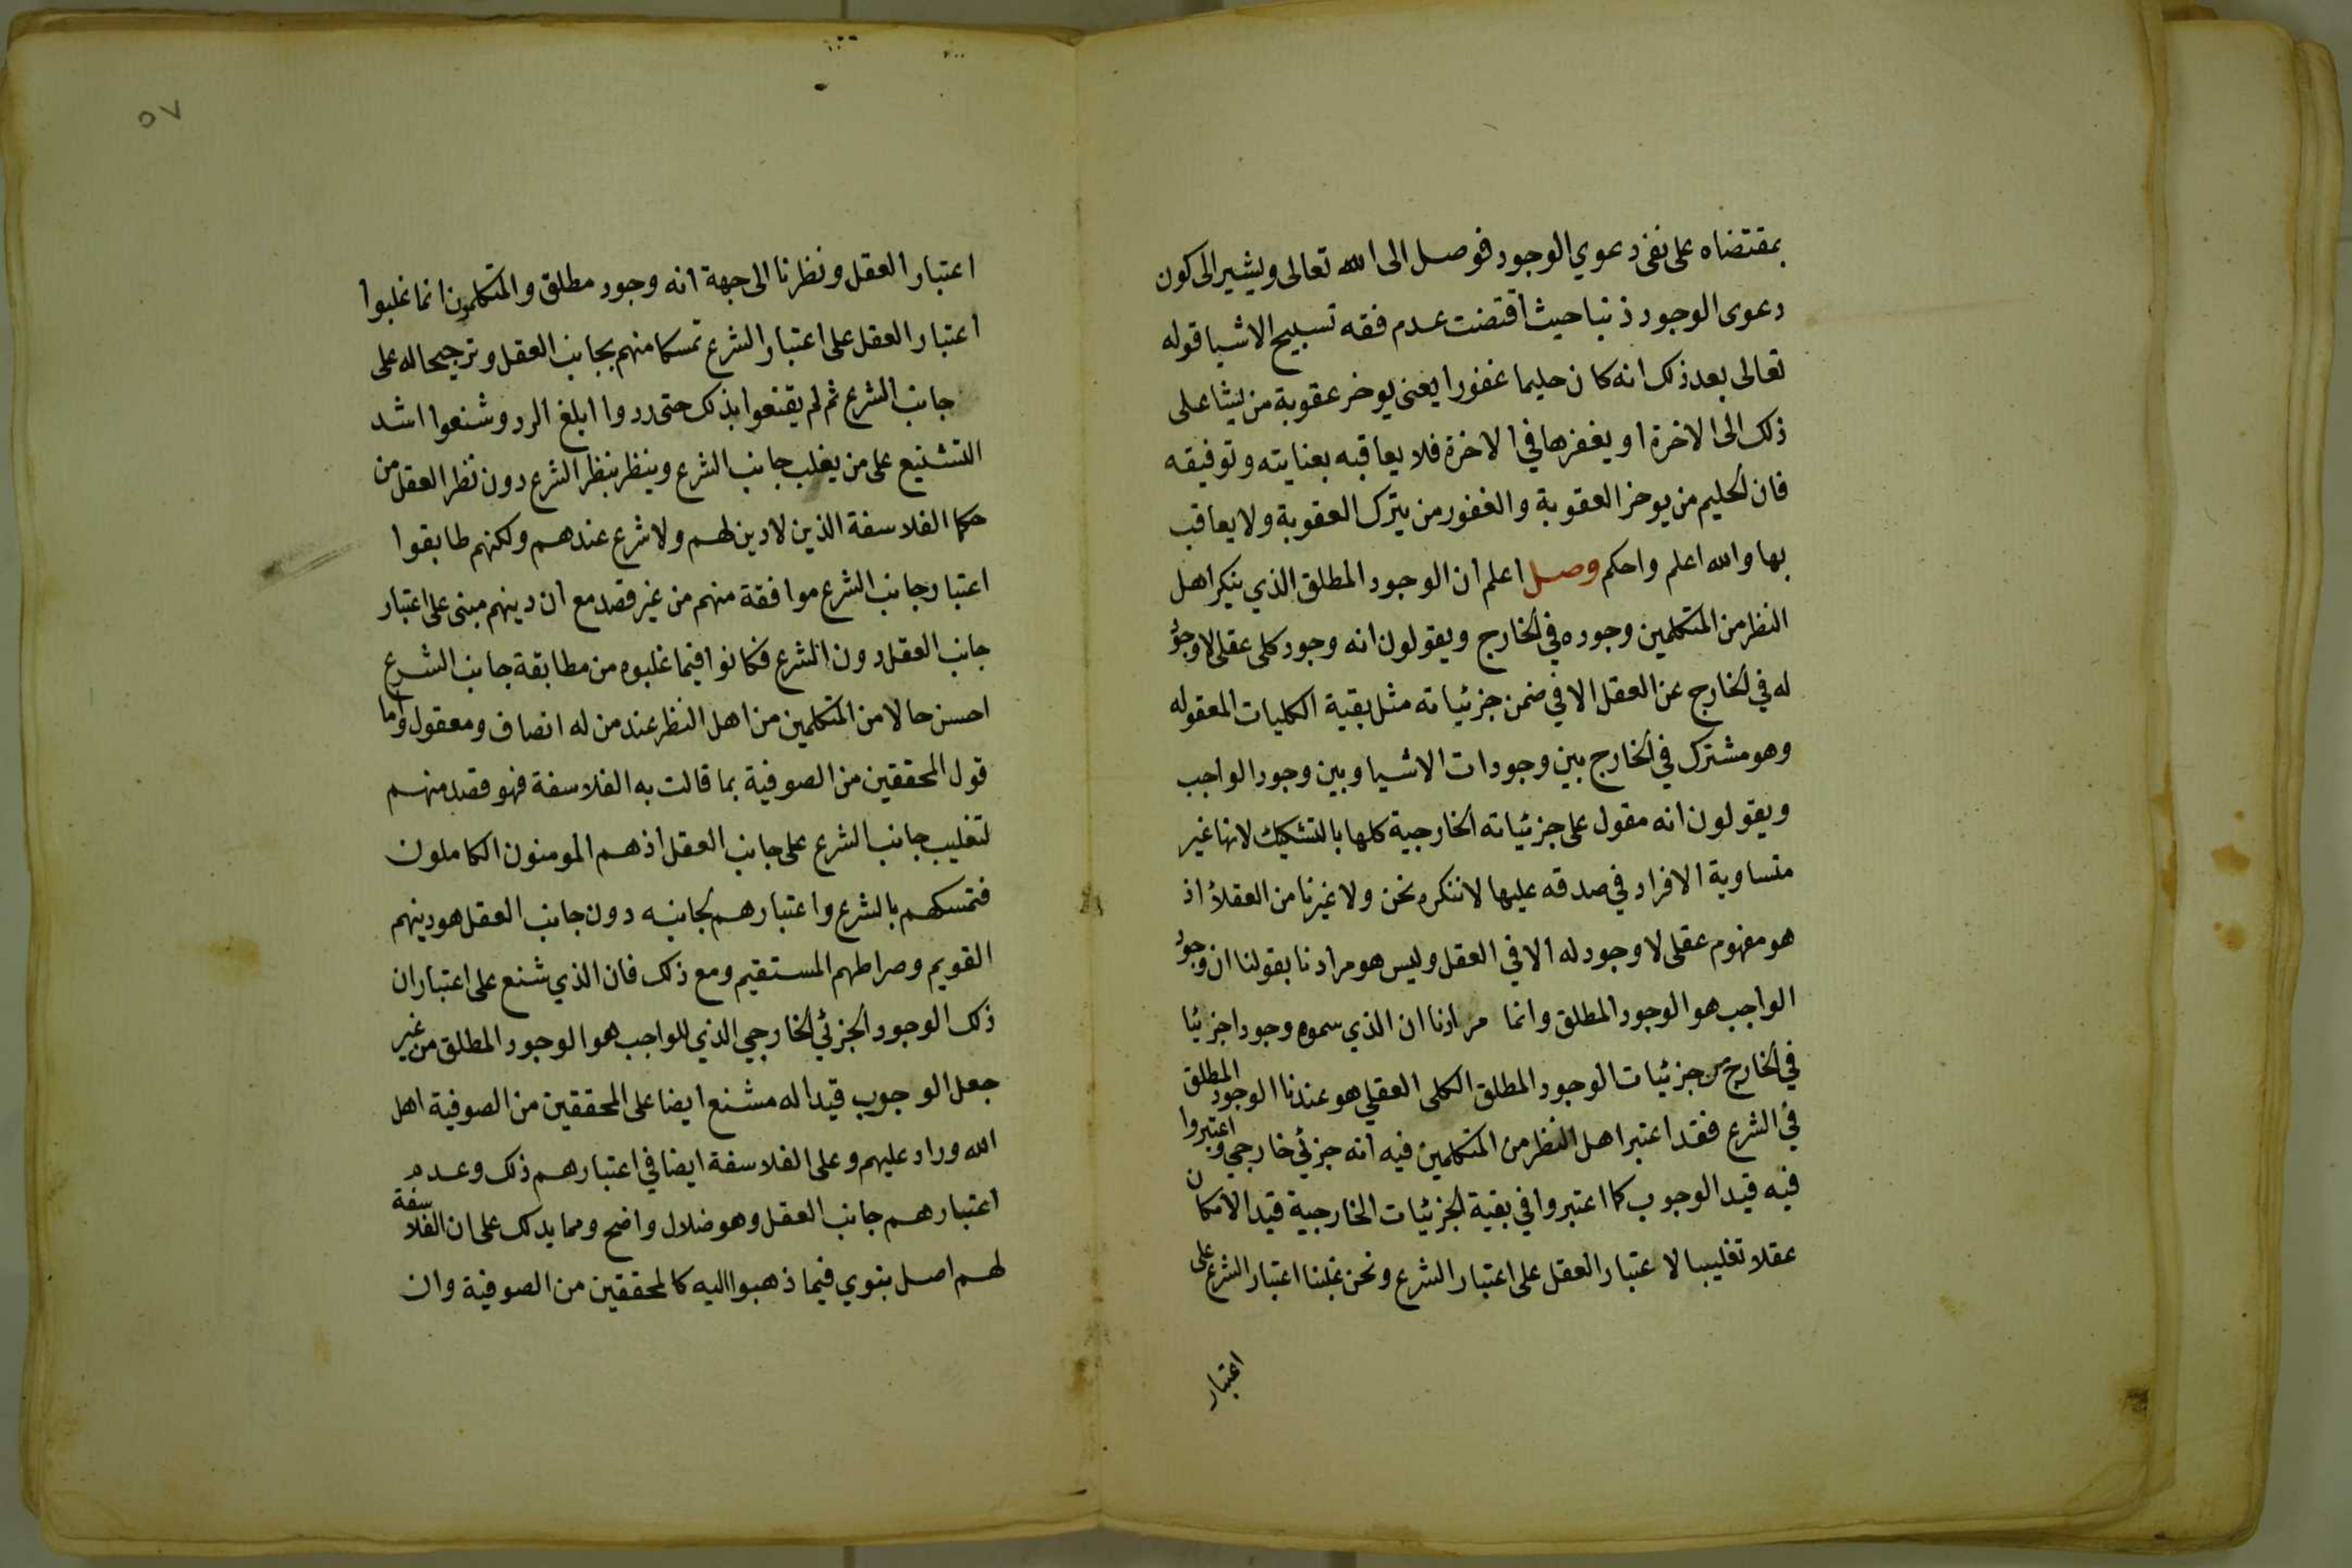 بمقتضاه على نفى دعوي الوجود فوصل الى الله تعالى ويشير الى كون
دعوى الوجود ذنبا حيث اقتضت عدم فقه تسبيح الاشيا قوله
تعالى بعد ذلك انه كان حليما غفورا يعنى يوخر عقوبة من يشا على
ذلك الى الاخرة او يغفرها في الاخرة فلا يعاقبه بعنايته وتوفيقه
فان الحليم من يوخر العقوبة والغفور من يترك العقوبة ولا يعاقب
بها والله اعلم واحكم وصل اعلم ان الوجود المطلق الذي ينكر اهل
النظر من المتكلمين وجوده في الخارج ويقولون انه وجود كلى عقلى لا وجود
له في الخارج عن العقل الا في ضمن جزئياته مثل بقية الكليات المعقوله
وهو مشترك في الخارج بين وجودات الاشيا وبين وجود الواجب
ويقولون انه مقول على جزئياته الخارجية كلها بالتشكيك لانها غير
متساوية الافراد في صدقه عليها لا ننكره نحن ولا غيرنا من العقلاء اذ
هو مفهوم عقلى لا وجود له الا في العقل وليس هو مرادنا بقولنا ان وجود
الواجب هو الوجود المطلق وانما مرادنا ان الذي سموه وجودا جزئيا
في الخارج من جزئيات الوجود المطلق الكلى العقلي هو عندنا الوجود المطلق
في الشرع فقد اعتبر اهل النظر من المتكلمين فيه انه جزئي خارجي واعتبروا
فيه قيد الوجوب كما اعتبروا في بقية الجزئيات الخارجية قيد الامكان
عقلا تغليبا لاعتبار العقل على اعتبار الشرع ونحن غلبنا اعتبار الشرع على
اعتبار
٥٧
اعتبار العقل ونظرنا الى جهة انه وجود مطلق والمتكلمون انما غلبوا
اعتبار العقل على اعتبار الشرع تمسكا منهم بجانب العقل وترجيحا له على
جانب الشرع ثم لم يقنعوا بذلك حتى ردوا ابلغ الرد وشنعوا اشد
التشنيع على من يغلب جانب الشرع وينظر بنظر الشرع دون نظر العقل من
حكما الفلاسفة الذين لا دين لهم ولا شرع عندهم ولكنهم طابقوا
اعتبار جانب الشرع موافقة منهم من غير قصد مع ان دينهم مبنى على اعتبار
جانب العقل دون الشرع فكانوا فيما غلبوه من مطابقة جانب الشرع
احسن حالا من المتكلمين من اهل النظر عند من له انصاف ومعقول واما
قول المحققين من الصوفية بما قالت به الفلاسفة فهو قصد منهم
لتغليب جانب الشرع على جانب العقل اذ هم المومنون الكاملون
فتمسكهم بالشرع واعتبارهم لجانبه دون جانب العقل هو دينهم
القويم وصراطهم المستقيم ومع ذلك فان الذي شنع على اعتبار ان
ذلك الوجود الجزئي الخارجي الذي للواجب هو الوجود المطلق من غير
جعل الوجوب قيدا له مشنع ايضا على المحققين من الصوفية اهل
الله وراد عليهم وعلى الفلاسفة ايضا في اعتبارهم ذلك وعدم
اعتبارهم جانب العقل وهو ضلال واضح ومما يدلك على ان الفلاسفة
لهم اصل بنوي فيما ذهبوا اليه كالمحققين من الصوفية وان